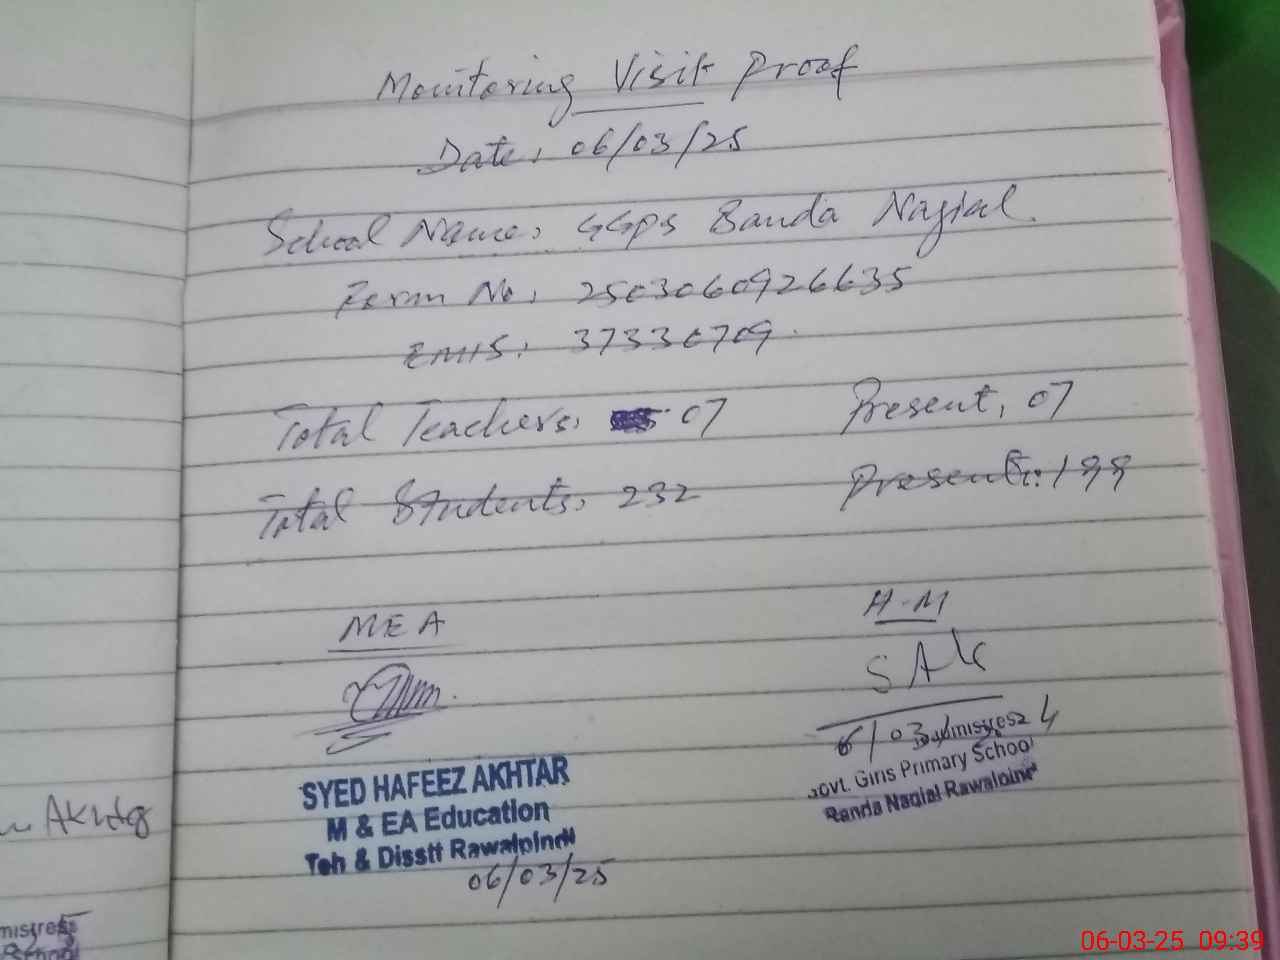 Monitoring Visit Proof
Date: 06/03/25
School Name: GGPS Banda Nagial.
Form No: 2503060926635
EMIS: 37330709
Total Teachers: 07 Present: 07
Total Students: 232 Present: 199
MEA
H.M
SAK
SYED HAFEEZ AKHTAR
M & EA Education
Teh & Disstt Rawalpindi
06/03/25
6/03
Govt. Girls Primary School
Banda Nagial Rawalpindi
Akhtar
mistress
School
06-03-25 09:39